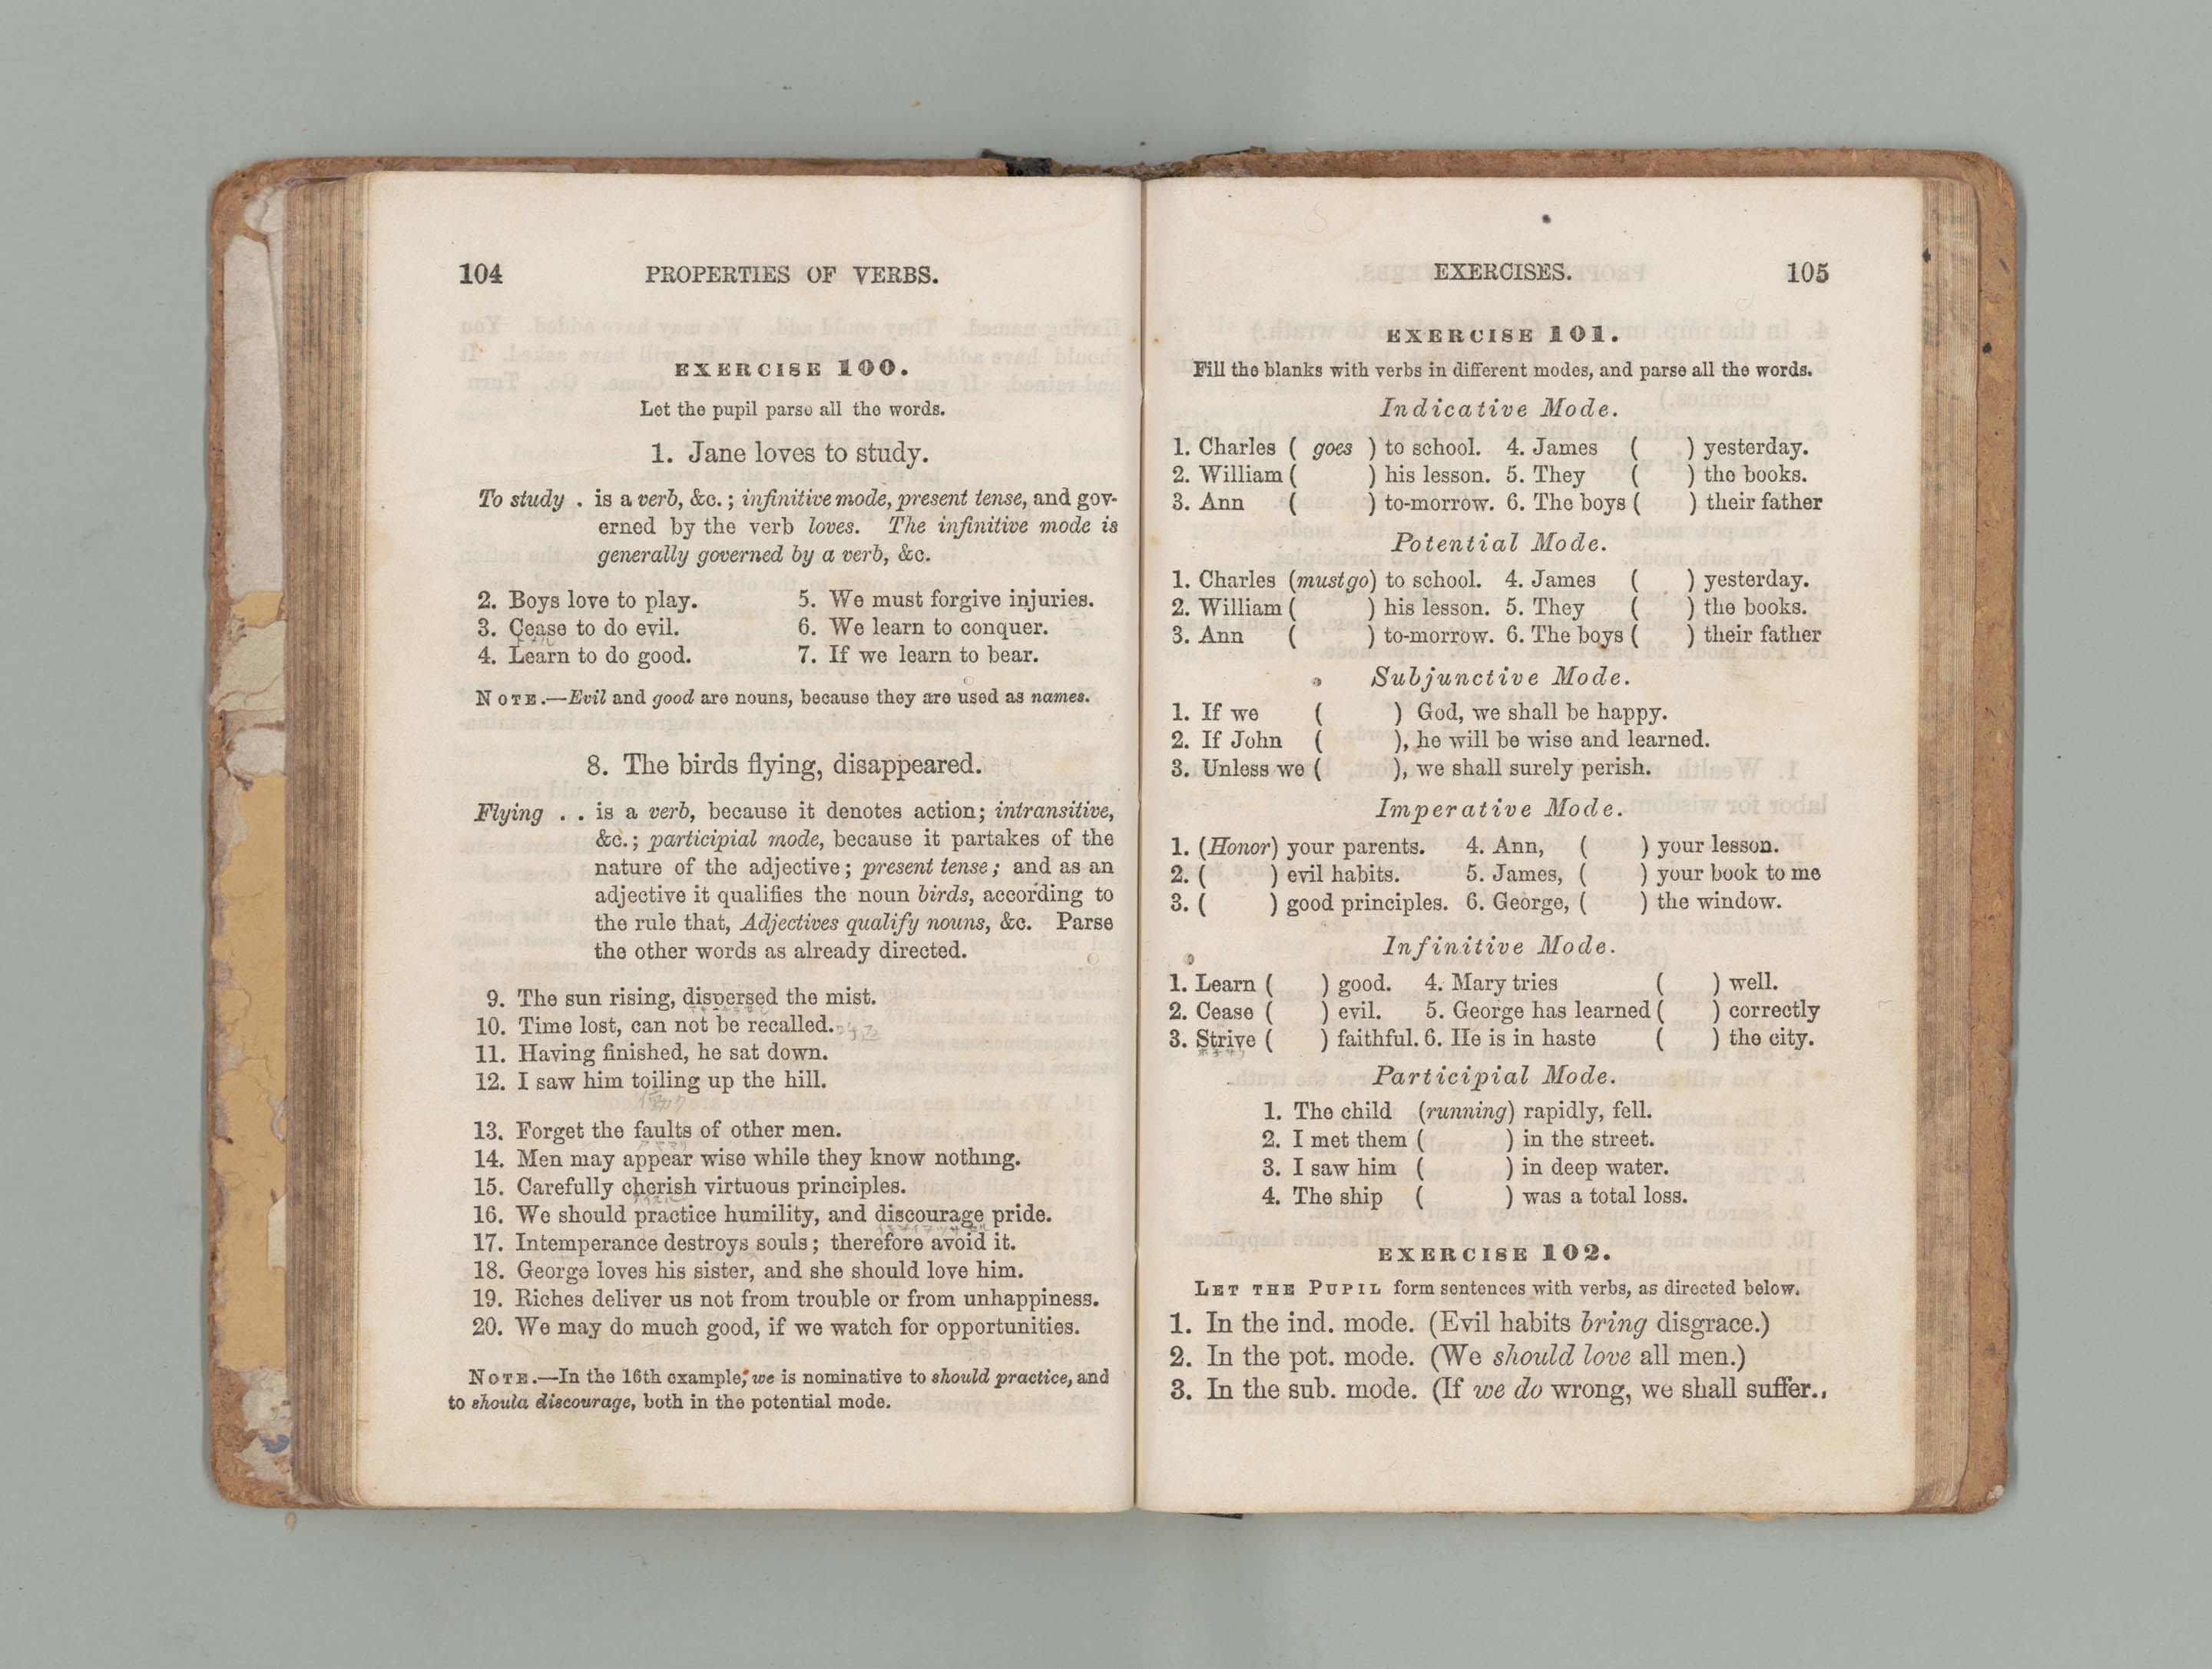 104 PROPERTIES OF VERBS.
EXERCISE 100.
Let the pupil parse all the words.
1. Jane loves to study.
To study . is a verb, &c. ; infinitive mode, present tense, and gov-
erned by the verb loves. The infinitive mode is
generally governed by a verb, &c.
2. Boys love to play.
3. Cease to do evil.
4. Learn to do good.
5. We must forgive injuries.
6. We learn to conquer.
7. If we learn to bear.
NOTE.—Evil and good are nouns, because they are used as names.
8. The birds flying, disappeared.
Flying . . is a verb, because it denotes action; intransitive,
&c.; participial mode, because it partakes of the
nature of the adjective; present tense; and as an
adjective it qualifies the noun birds, according to
the rule that, Adjectives qualify nouns, &c. Parse
the other words as already directed.
9. The sun rising, dispersed the mist.
10. Time lost, can not be recalled.
11. Having finished, he sat down.
12. I saw him toiling up the hill.
働ク
13. Forget the faults of other men.
14. Men may appear wise while they know nothing.
15. Carefully cherish virtuous principles.
16. We should practice humility, and discourage pride.
17. Intemperance destroys souls; therefore avoid it.
18. George loves his sister, and she should love him.
19. Riches deliver us not from trouble or from unhappiness.
20. We may do much good, if we watch for opportunities.
NOTE.—In the 16th example, we is nominative to should practice, and
to should discourage, both in the potential mode.
EXERCISES. 105
EXERCISE 101.
Fill the blanks with verbs in different modes, and parse all the words.
Indicative Mode.
1. Charles ( goes ) to school. 4. James ( ) yesterday.
2. William ( ) his lesson. 5. They ( ) the books.
3. Ann ( ) to-morrow. 6. The boys ( ) their father
Potential Mode.
1. Charles (must go) to school. 4. James ( ) yesterday.
2. William ( ) his lesson. 5. They ( ) the books.
3. Ann ( ) to-morrow. 6. The boys ( ) their father
Subjunctive Mode.
1. If we ( ) God, we shall be happy.
2. If John ( ), he will be wise and learned.
3. Unless we ( ), we shall surely perish.
Imperative Mode.
1. (Honor) your parents. 4. Ann, ( ) your lesson.
2. ( ) evil habits. 5. James, ( ) your book to me
3. ( ) good principles. 6. George, ( ) the window.
Infinitive Mode.
1. Learn ( ) good. 4. Mary tries ( ) well.
2. Cease ( ) evil. 5. George has learned ( ) correctly
3. Strive ( ) faithful. 6. He is in haste ( ) the city.
Participial Mode.
1. The child (running) rapidly, fell.
2. I met them ( ) in the street.
3. I saw him ( ) in deep water.
4. The ship ( ) was a total loss.
EXERCISE 102.
LET THE PUPIL form sentences with verbs, as directed below.
1. In the ind. mode. (Evil habits bring disgrace.)
2. In the pot. mode. (We should love all men.)
3. In the sub. mode. (If we do wrong, we shall suffer.,